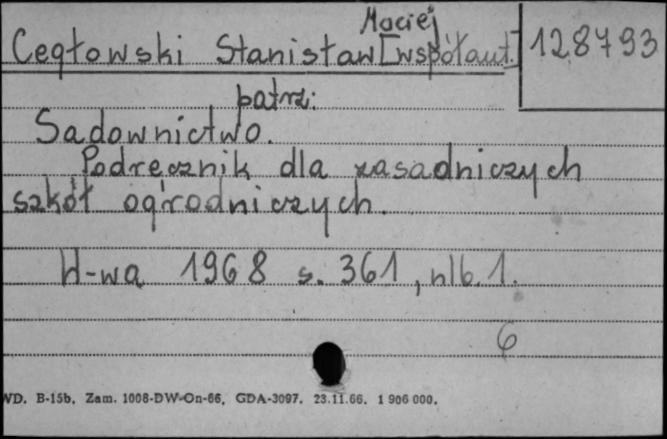 Maciej
Cegłowski Stanisław [współaut.] 128793
patrz:
Sadownictwo.
Podręcznik dla zasadniczych
szkół ogrodniczych.
W-wa 1968 s. 361, nlb. 1.
6
WD. B-15b. Zam. 1008-DW-On-66, GDA-3097. 23.11.66. 1 906 000.